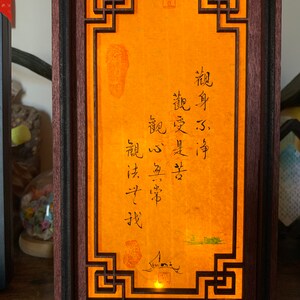 觀身不淨
觀受是苦
觀心無常
觀法無我